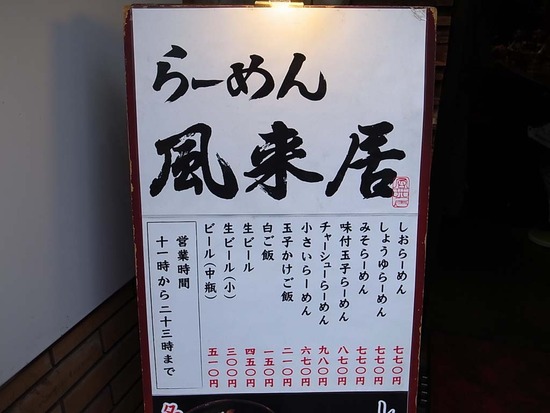 らーめん
風来居
しおらーめん 七七〇円
しょうゆらーめん 七七〇円
みそらーめん 七七〇円
味付玉子らーめん 八七〇円
チャーシューらーめん 九八〇円
小さいらーめん 六七〇円
玉子かけご飯 二一〇円
白ご飯 一五〇円
生ビール 四五〇円
生ビール(小) 三〇〇円
ビール(中瓶) 五一〇円
営業時間
十一時から二十三時まで